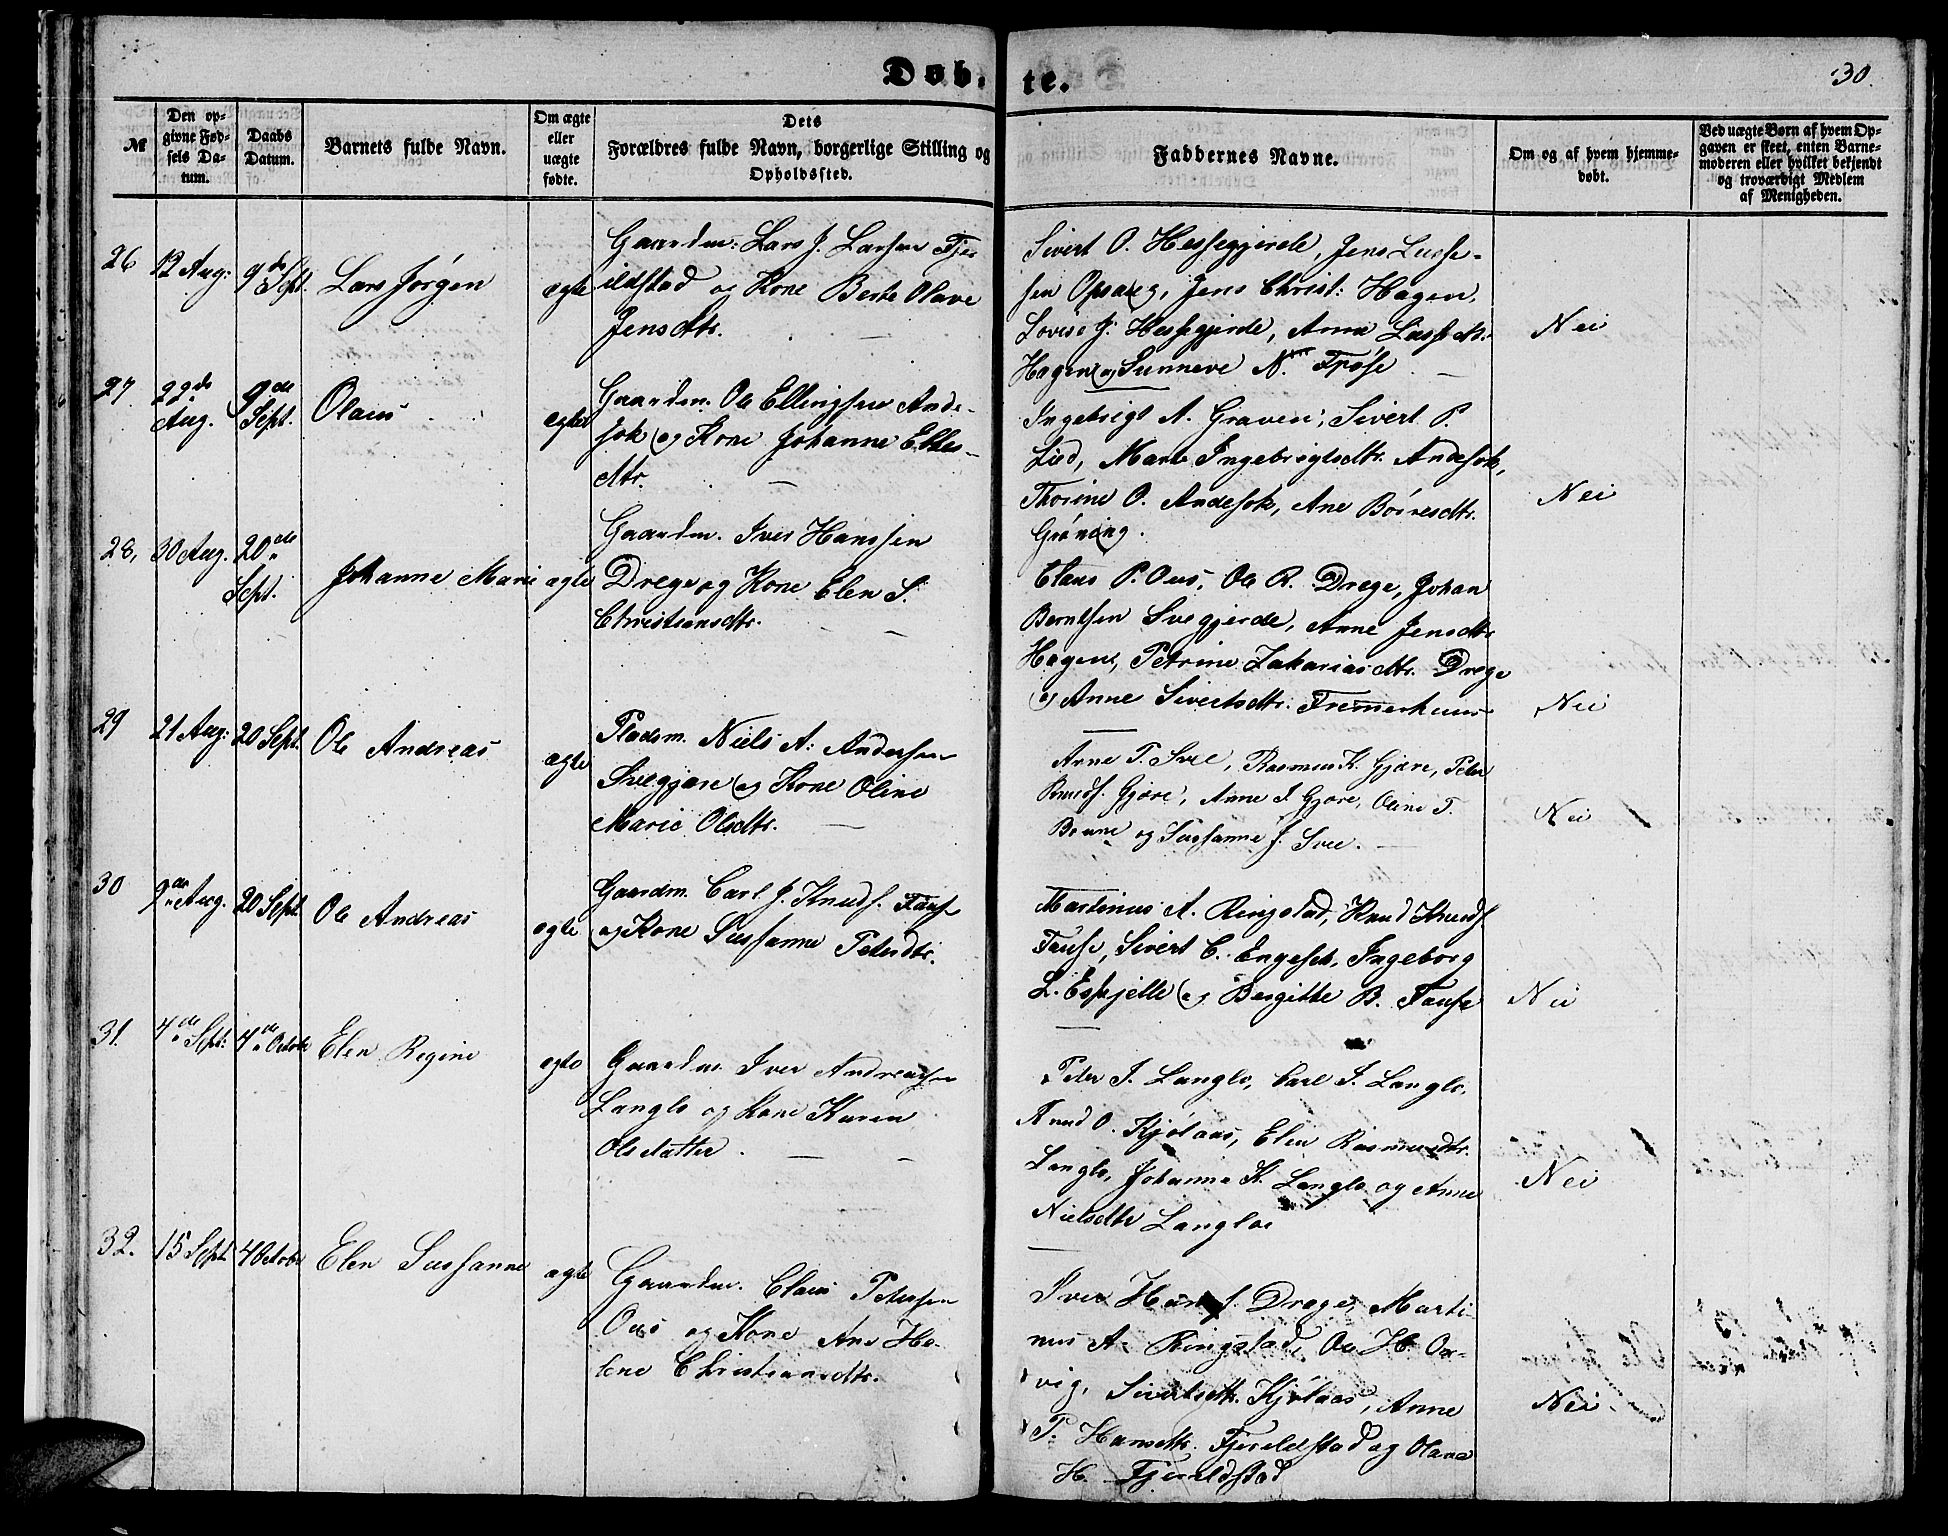 Døb-
te.
30.
№
Den op-
givne Fød-
sels Da-
tum.
Daabs
Datum.
Barnets fulde Navn.
Om ægte
eller
uægte
fødte.
Dets
Forældres fulde Navn, borgerlige Stilling og
Opholdssted.
Faddernes Navne.
Om og af hvem hjemme-
døbt.
Ved uægte Børn af hvem Op-
gaven er skeet, enten Barne-
moderen eller hvilket bekjendt
og troværdigt Medlem
af Menigheden.
26
12 Aug:
9de Sept.
Lars Jørgen
ægte
Gaardm: Lars J. Larsen Fje-
ildstad og Kone Berte Olave
Jensdtr.
Sivert O. Hessegjerde, Jens Lasse-
sen Opsaug, Jens Christ: Hagen,
Lovise J. Hessegjerde, Anna Lassedtr.
Hagen og Sunneve N. Frøse
Nei
27
22de
Aug.
9de
Sept.
Olaus
ægte
Gaardm. Ole Ellingsen Ande-
sok og Kone Johanne Ellers-
dtr.
Ingebrigt A. Graven, Sivert P.
Lied, Marte Ingebrigtsdtr. Andesok,
Thorine O. Andesok, Ane Børresdtr.
Grøning.
Nei
28,
30 Aug.
20de
Sept.
Johanne Marie
ægte
Gaardm. Iver Hanssen
Drege og Kone Elen S.
Christiansdtr.
Claus P. Ous, Ole R. Drege, Johan
Berntsen Svegjerde, Anne Jensdtr
Hagen, Petrine Zakariasdtr. Drege
og Anne Sivertsdtr. Fremerhuus
Nei
29
21 Aug:
20 Sept.
Ole Andreas
ægte
Pladsm. Niels A. Andersen
Svegjære og Kone Oline
Marie Olsdtr.
Arne T. Svee, Rasmus K. Gjære, Peter
Knuds. Gjære, Anne I. Gjære, Oline T.
Brune og Sussanne J. Svee.
Nei
30
9de Aug.
20 Sept
Ole Andreas
ægte
Gaardm. Carl J. Knuds. Fause
og Kone Sussanne Petersdtr.
Martinus A. Ringstad, Knud Knuds.
Fause, Sivert C. Engeset, Ingeborg
L. Eskjelle og Bergitte B. Fause
Nei
31.
4de Sept:
4de Octobr
Elen Regine
ægte
Gaardm. Iver Andreassen
Langlo og Kone Karen
Olsdatter.
Peter I. Langlo, Carl I. Langlo,
Knud O. Kjølaas, Elen Rasmusdtr.
Langlo, Johanne K. Langlo og Anne
Nielsdtr Langloe
Nei
32.
15 Sept.
4 Octobr
Elen Sussanne
ægte
Gaardm. Claus Petersen
Ous og Kone Ane He-
lene Christiansdtr.
Iver Hans. Drege, Marti-
nus A. Ringstad, Ole H. Or-
vig, Sivertsdtr. Kjølaas, Anne
P. Hansdtr. Fjeeldstad og Olave
H. Fjeeldstad
Nei